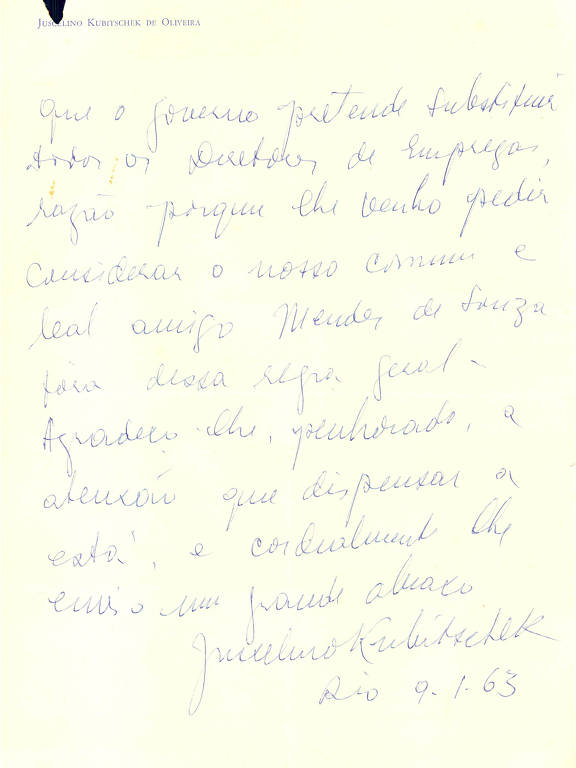 Juscelino Kubitschek de Oliveira
que o governo pretende substituir
todos os Diretores de Empregas,
razão porque lhe venho pedir
considerar o nosso comum e
leal amigo Mendes de Souza
fóra dessa regra geral -
Agradeço-lhe, penhorado, a
atenção que dispensar a
esta, e cordialmente lhe
envio um grande abraço
Juscelino Kubitschek
Rio 9.1.63